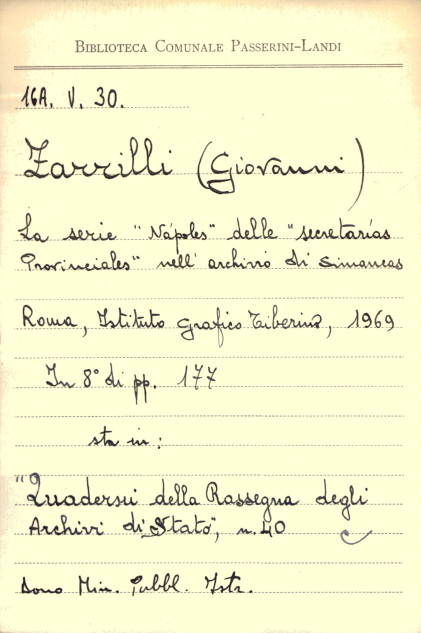 BIBLIOTECA COMUNALE PASSERINI-LANDI
16A. V. 30.
Zarrilli (Giovanni)
La serie "Nápoles" delle "secretarías
Provinciales" nell'archivio di Simancas
Roma, Istituto Grafico Tiberino, 1969
In 8° di pp. 177
sta in:
"Quaderni della Rassegna degli
Archivi di Stato", n. 40
Dono Min. Pubbl. Istr.